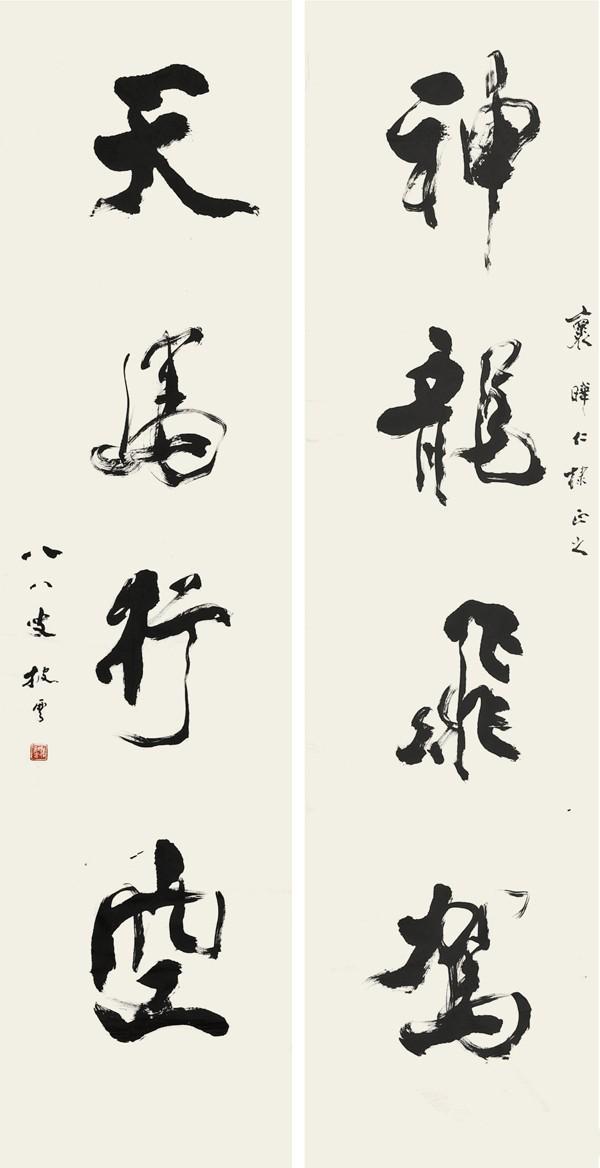 神龍飛駕
曄仁棣正之
天馬行空
八八叟披雲